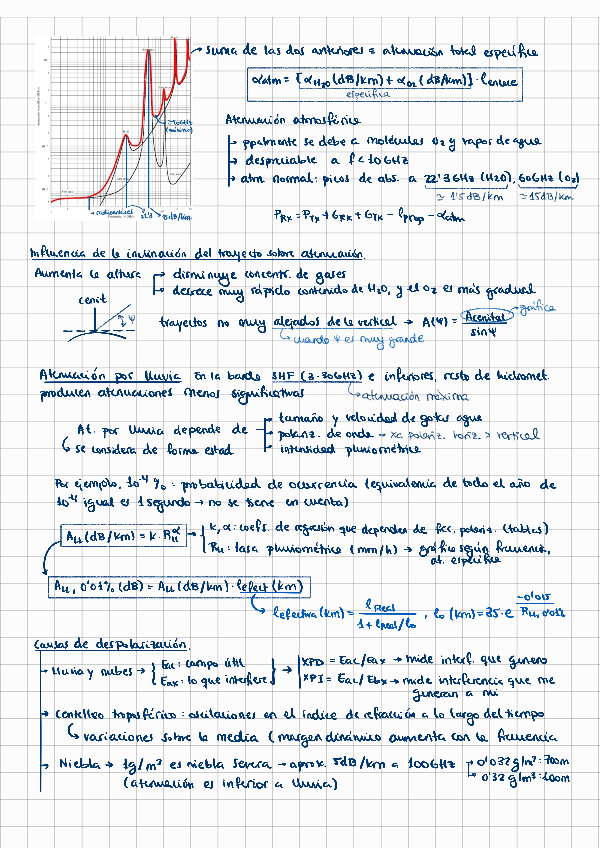 → suma de las dos anteriores = atenuación total específica
αatm = [αH2O (dB/km) + αO2 (dB/km)] · lenlace
específica
Atenuación atmosférica
→ ppalmente se debe a moléculas O2 y vapor de agua
→ despreciable a f<10GHz
→ atm normal: picos de abs. a 22'3GHz (H2O), 60GHz (O2)
≃ 1'5dB/km ≃ 15dB/km
PRX = PTX + GRX + GTX − lprop − αatm
(máximo)
radioenlaces 22'3
Influencia de la inclinación del trayecto sobre atenuación.
Aumenta la altura → disminuye concentr. de gases
→ decrece muy rápido contenido de H2O, y el O2 es más gradual
cenit
Ψ
trayectos no muy alejados de la vertical → A(Ψ) = Acenital / sinΨ → gráfica
↪ cuando Ψ es muy grande
Atenuación por lluvia En la banda SHF (3-30GHz) e inferiores, resto de hidromet.
producen atenuaciones menos significativas
→ atenuación máxima
At. por lluvia depende de → tamaño y velocidad de gotas agua
→ polariz. de onda → xa polariz. horiz. > vertical
→ intensidad pluviométrica
↪ se considera de forma estad.
Por ejemplo, 10^-4 % : probabilidad de ocurrencia (equivalencia de todo el año de
10^-4 igual es 1 segundo → no se tiene en cuenta)
Au (dB/km) = k · Ru^α → k, α: coefs. de regresión que dependen de frec, polariz. (tablas)
Ru: tasa pluviométrica (mm/h) → gráfico según frecuencia,
at. específica
Au, 0'01% (dB) = Au (dB/km) · lefect (km)
↪ lefectiva (km) = lReal / 1 + lReal/lo , lo (km) = 35 · e^ -0'015 Ru, 0'01%
Causas de despolarización.
→ lluvia y nubes → { Eac: campo útil → XPD = Eac/Eax → mide interf. que genero
Eax: lo que interfiere XPI = Eac/Ebx → mide interferencia que me
generan a mí
→ Centelleo troposférico: oscilaciones en el índice de refracción a lo largo del tiempo
↪ variaciones sobre la media (margen dinámico aumenta con la frecuencia
→ Niebla → 1g/m³ es niebla severa → aprox. 5dB/km a 100GHz → 0'032 g/m³: 700m
→ 0'32 g/m³: 100m
(atenuación es inferior a lluvia)